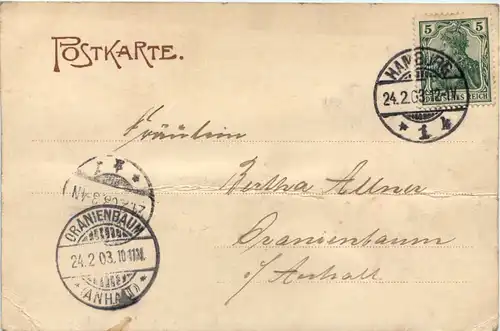 POSTKARTE.
5
DEUTSCHES REICH
HAMBURG
24.2.03.12-1N.
* 1 k
Fräulein
Bertha Allner
Oranienbaum
i/Anhalt
ORANIENBAUM
24.2.03.10-11N.
* (ANHALT) *